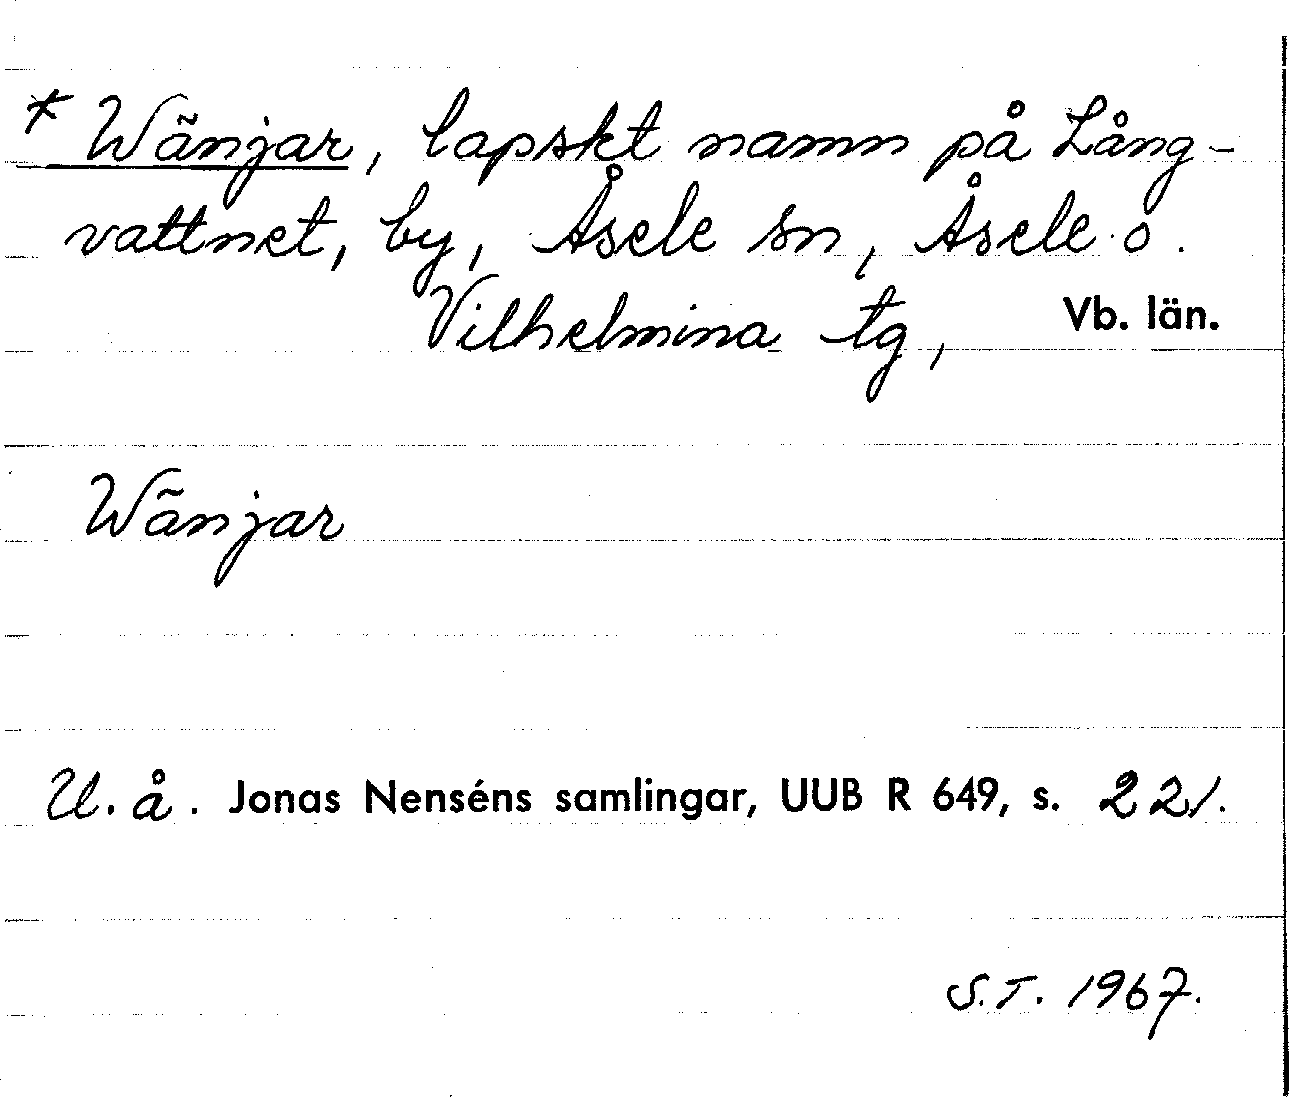 * Wãnjar, lapskt namn på Lång-
vattnet, by, Åsele sn, Åsele o.
Vilhelmina tg, Vb. län.
Wãnjar
U. å. Jonas Nenséns samlingar, UUB R 649, s. 221.
S.T. 1967.